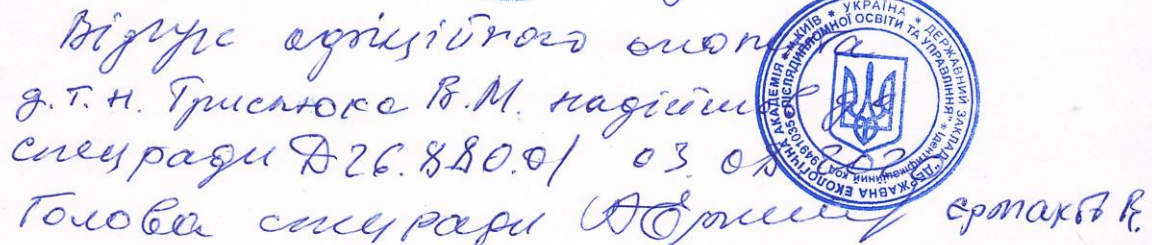 Відгук офіційного опонента
д.т.н. Триснюка В.М. надійшов до
спецради Д26.880.01 03.
Голова спецради Єрмаков В.
УКРАЇНА * ДЕРЖАВНИЙ ЗАКЛАД "ДЕРЖАВНА ЕКОЛОГІЧНА АКАДЕМІЯ ПІСЛЯДИПЛОМНОЇ ОСВІТИ ТА УПРАВЛІННЯ" * м. КИЇВ *
Ідентифікаційний код